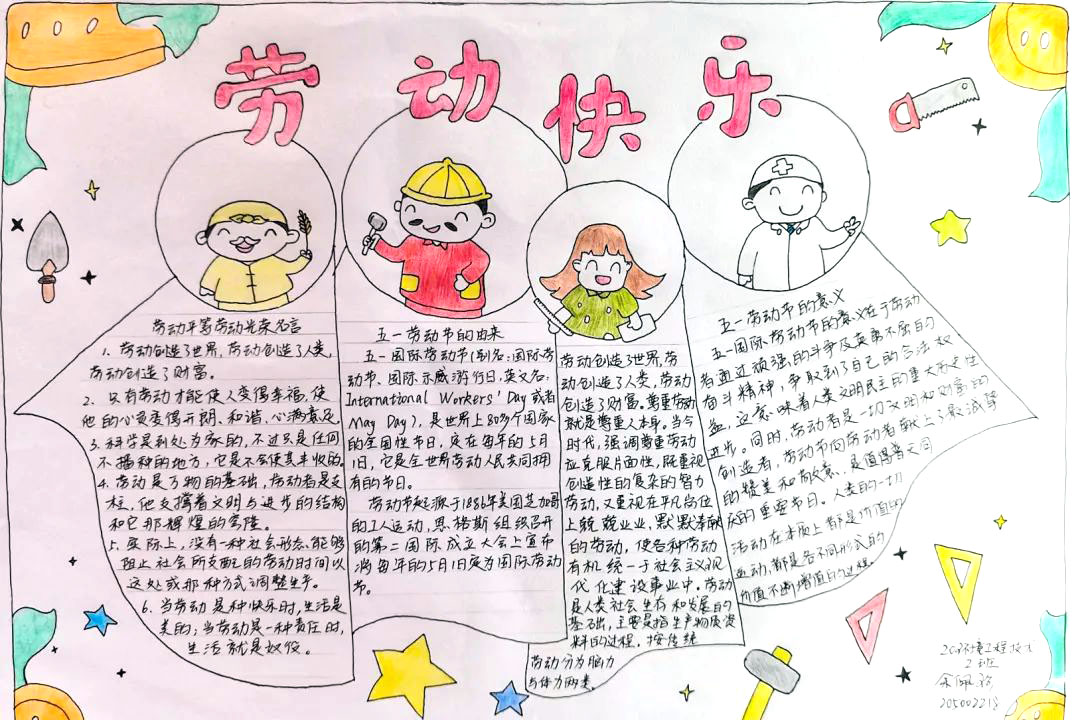 劳动快乐
劳动平等劳动光荣名言
1、劳动创造了世界,劳动创造了人类,
劳动创造了财富。
2、只有劳动才能使人变得幸福,使
他的心灵变得开朗、和谐、心满意足
3、科学是到处为家的,不过只是任何
不播种的地方,它是不会使其丰收的。
4、劳动是万物的基础,劳动者是支
柱,他支撑着文明与进步的结构
和它那辉煌的穹隆。
5、实际上,没有一种社会形态,能够
阻止社会所支配的劳动时间以
这处或那种方式调整生平。
6、当劳动是种快乐时,生活是
美的;当劳动是一种责任时,
生活就是奴役。
五一劳动节的由来
五一国际劳动节(别名:国际劳
动节、国际示威游行日,英文名:
International Workers' Day或者
May Day),是世界上80%个国家
的全国性节日,定在每年的5月
1日,它是全世界劳动人民共同拥
有的节日。
劳动节起源于1886年美国芝加哥
的工人运动,恩格斯组织召开
的第二国际成立大会上宣布
将每年的5月1日定为国际劳动
节。
劳动创造了世界,劳
动创造了人类,劳动
创造了财富。尊重劳动
就是尊重人本身。当今
时代,强调尊重劳动
应克服片面性,既重视
创造性的复杂的智力
劳动,又重视在平凡岗位
上兢兢业业,默默奉献
的劳动,使各种劳动
有机统一于社会主义现
代化建设事业中。劳动
是人类社会生存和发展的
基础,主要是指生产物质资
料的过程,按传统
劳动分为脑力
与体力两类。
五一劳动节的意义
五一国际劳动节的意义在于劳动
者通过顽强的斗争及英勇不屈的
奋斗精神,争取到了自己的合法权
益,这意味着人类文明民主的重大历史性
进步。同时,劳动者是一切文明和财富的
创造者,劳动节向劳动者献上了最诚挚
的赞美和敬意,是值得普天同
庆的重要节日。人类的一切
活动在本质上都是价值的
运动,都是各不同形式的
价值不断增值的过程。
2班
205002218